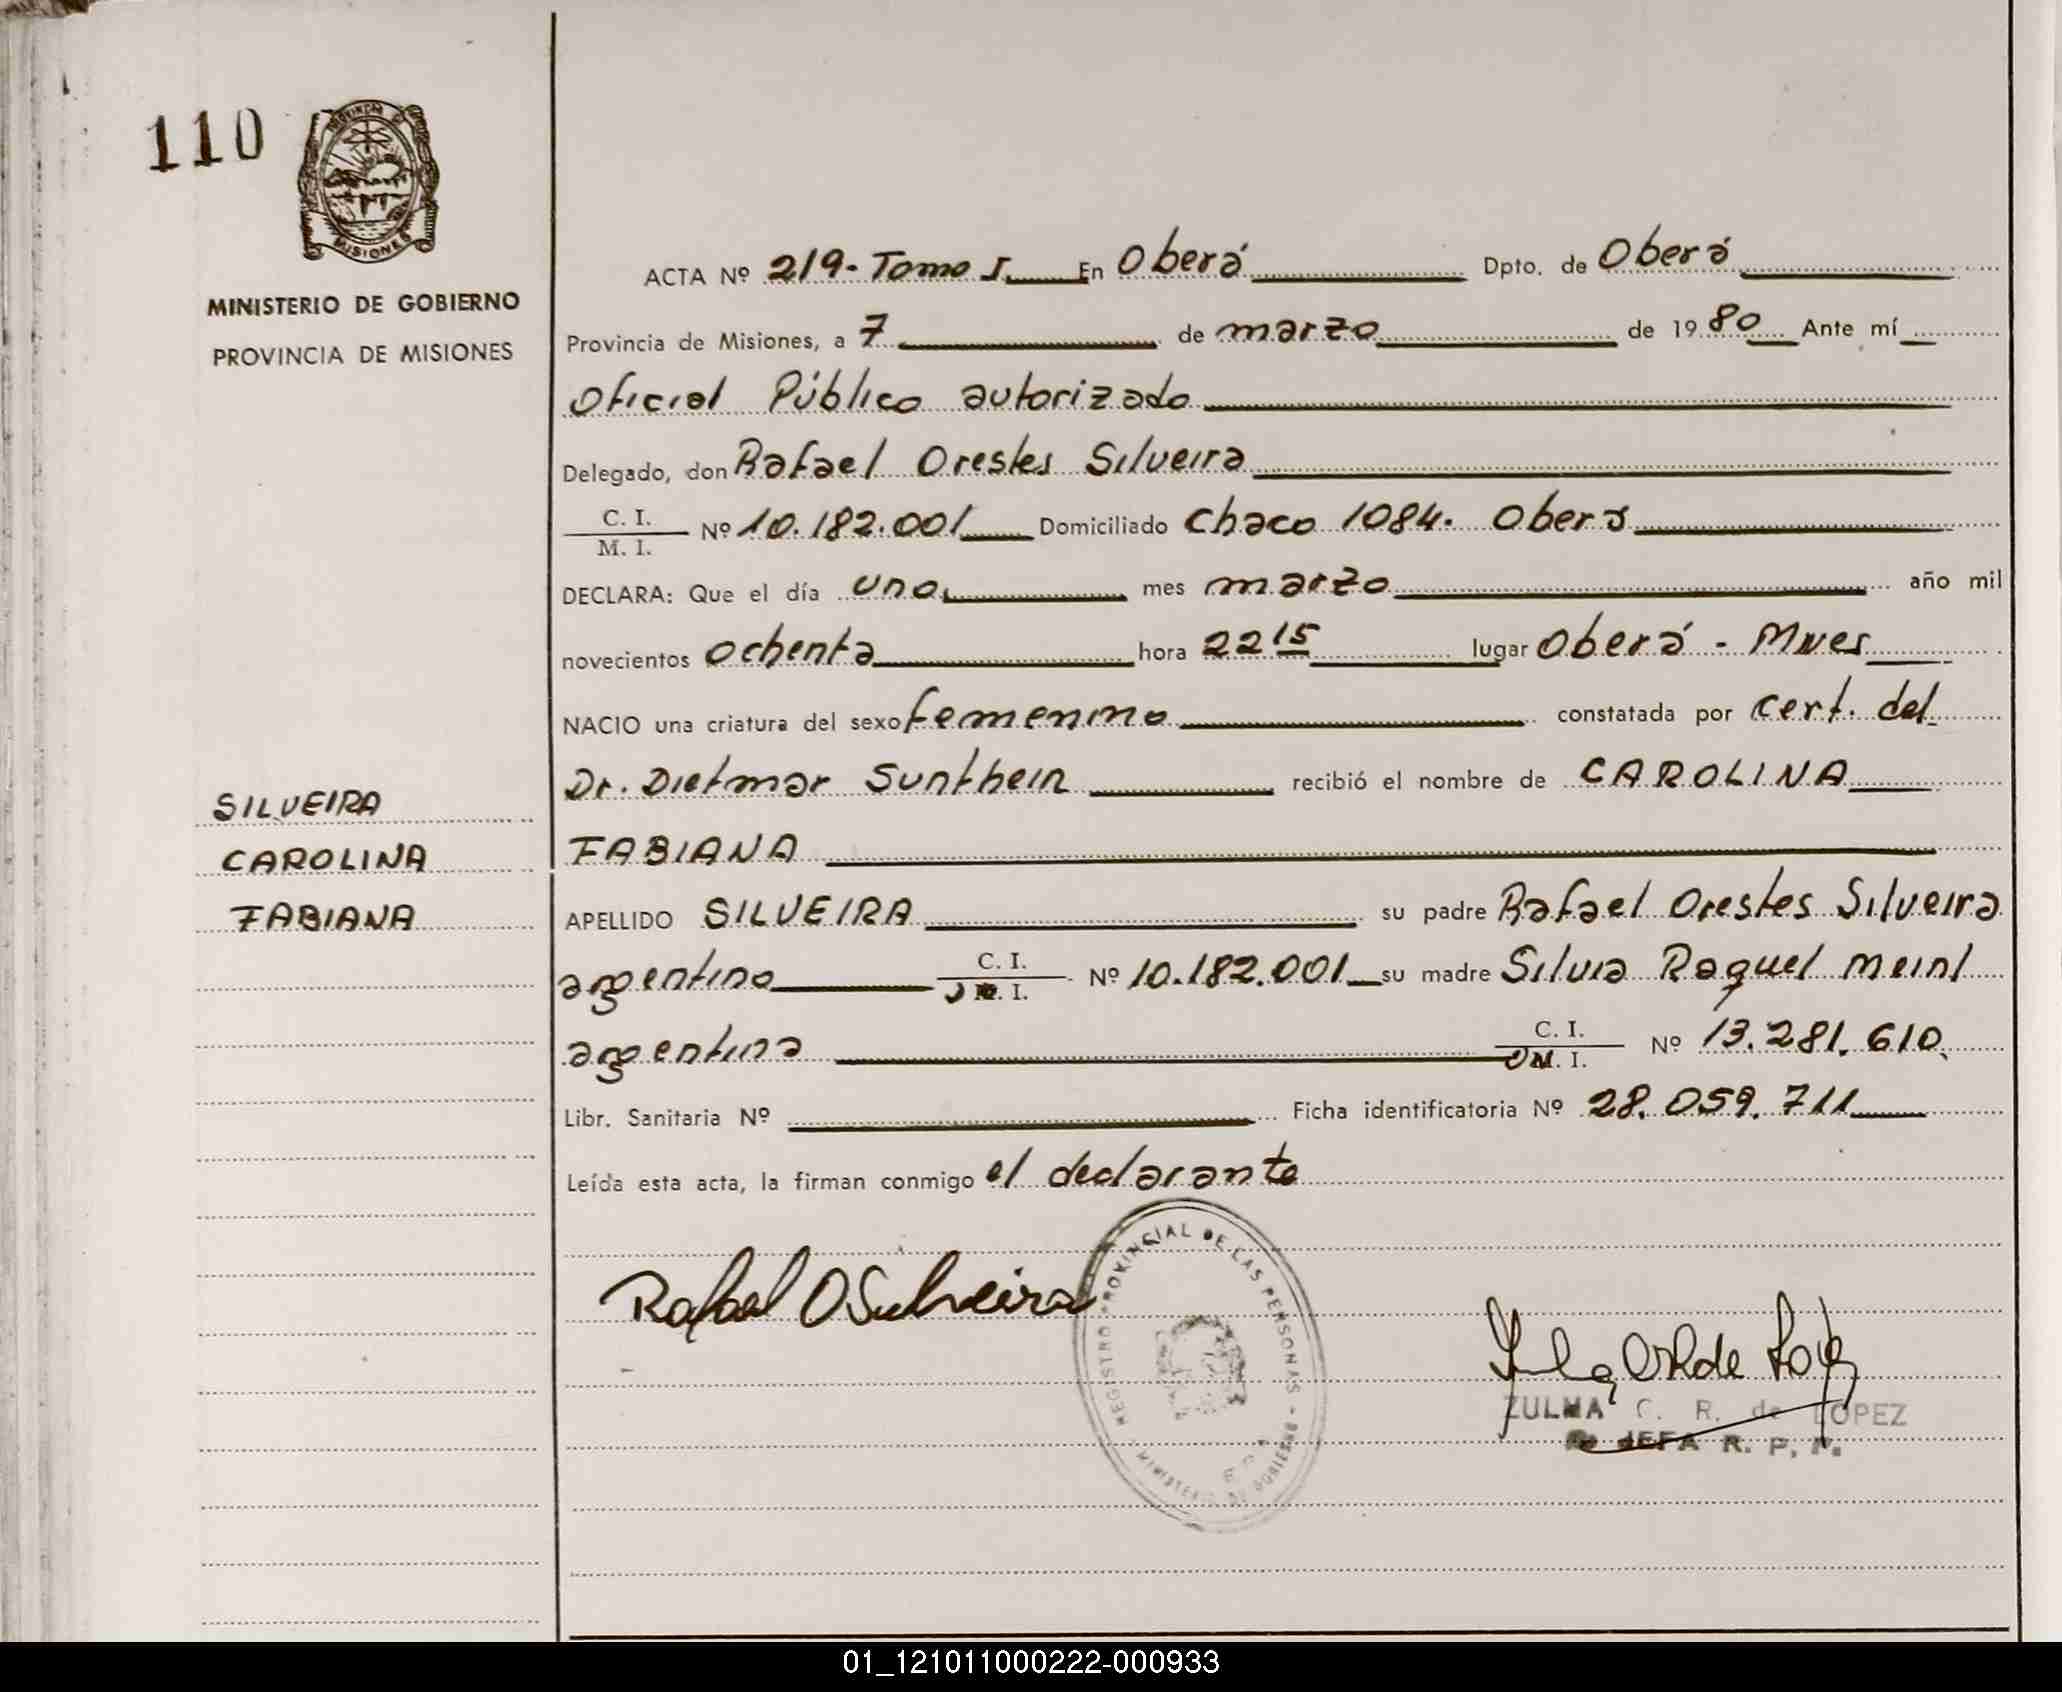 110
PROVINCIA DE
MISIONES
MINISTERIO DE GOBIERNO
PROVINCIA DE MISIONES
ACTA Nº 219- Tomo I. En Oberá Dpto. de Oberá
Provincia de Misiones, a 7 de marzo de 1980 Ante mí
Oficial Público autorizado
Delegado, don Rafael Orestes Silveira
C. I.
M. I.
Nº 10.182.001 Domiciliado Chaco 1084. Oberá
DECLARA: Que el día uno mes marzo año mil
novecientos ochenta hora 22 15 lugar Oberá - Mnes
NACIO una criatura del sexo femenino constatada por cert. del
Dr. Dietmar Sunthein recibió el nombre de CAROLINA
FABIANA
SILVEIRA
CAROLINA
FABIANA
APELLIDO SILVEIRA su padre Rafael Orestes Silveira
argentino C. I. M. I. Nº 10.182.001 su madre Silvia Raquel Meinl
argentina C. I. M. I. Nº 13.281.610.
Libr. Sanitaria Nº Ficha identificatoria Nº 28.059.711
Leída esta acta, la firman conmigo el declarante
Rafael O Silveira
REGISTRO PROVINCIAL DE LAS PERSONAS - MINISTERIO DE GOBIERNO
ZULMA C. R. de LOPEZ
JEFA R. P. P.
01_121011000222-000933